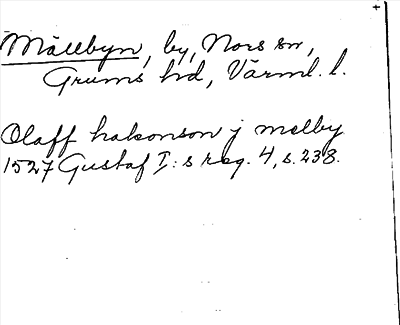 Mällbyn, by, Nors sn,
Grums hd, Värml. l.
Olaff hakonson j melby
1527 Gustaf I:s reg. 4, s. 238.